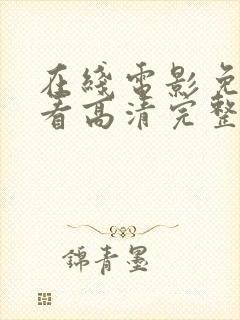 在綫電影免
看高清完整
錦青墨